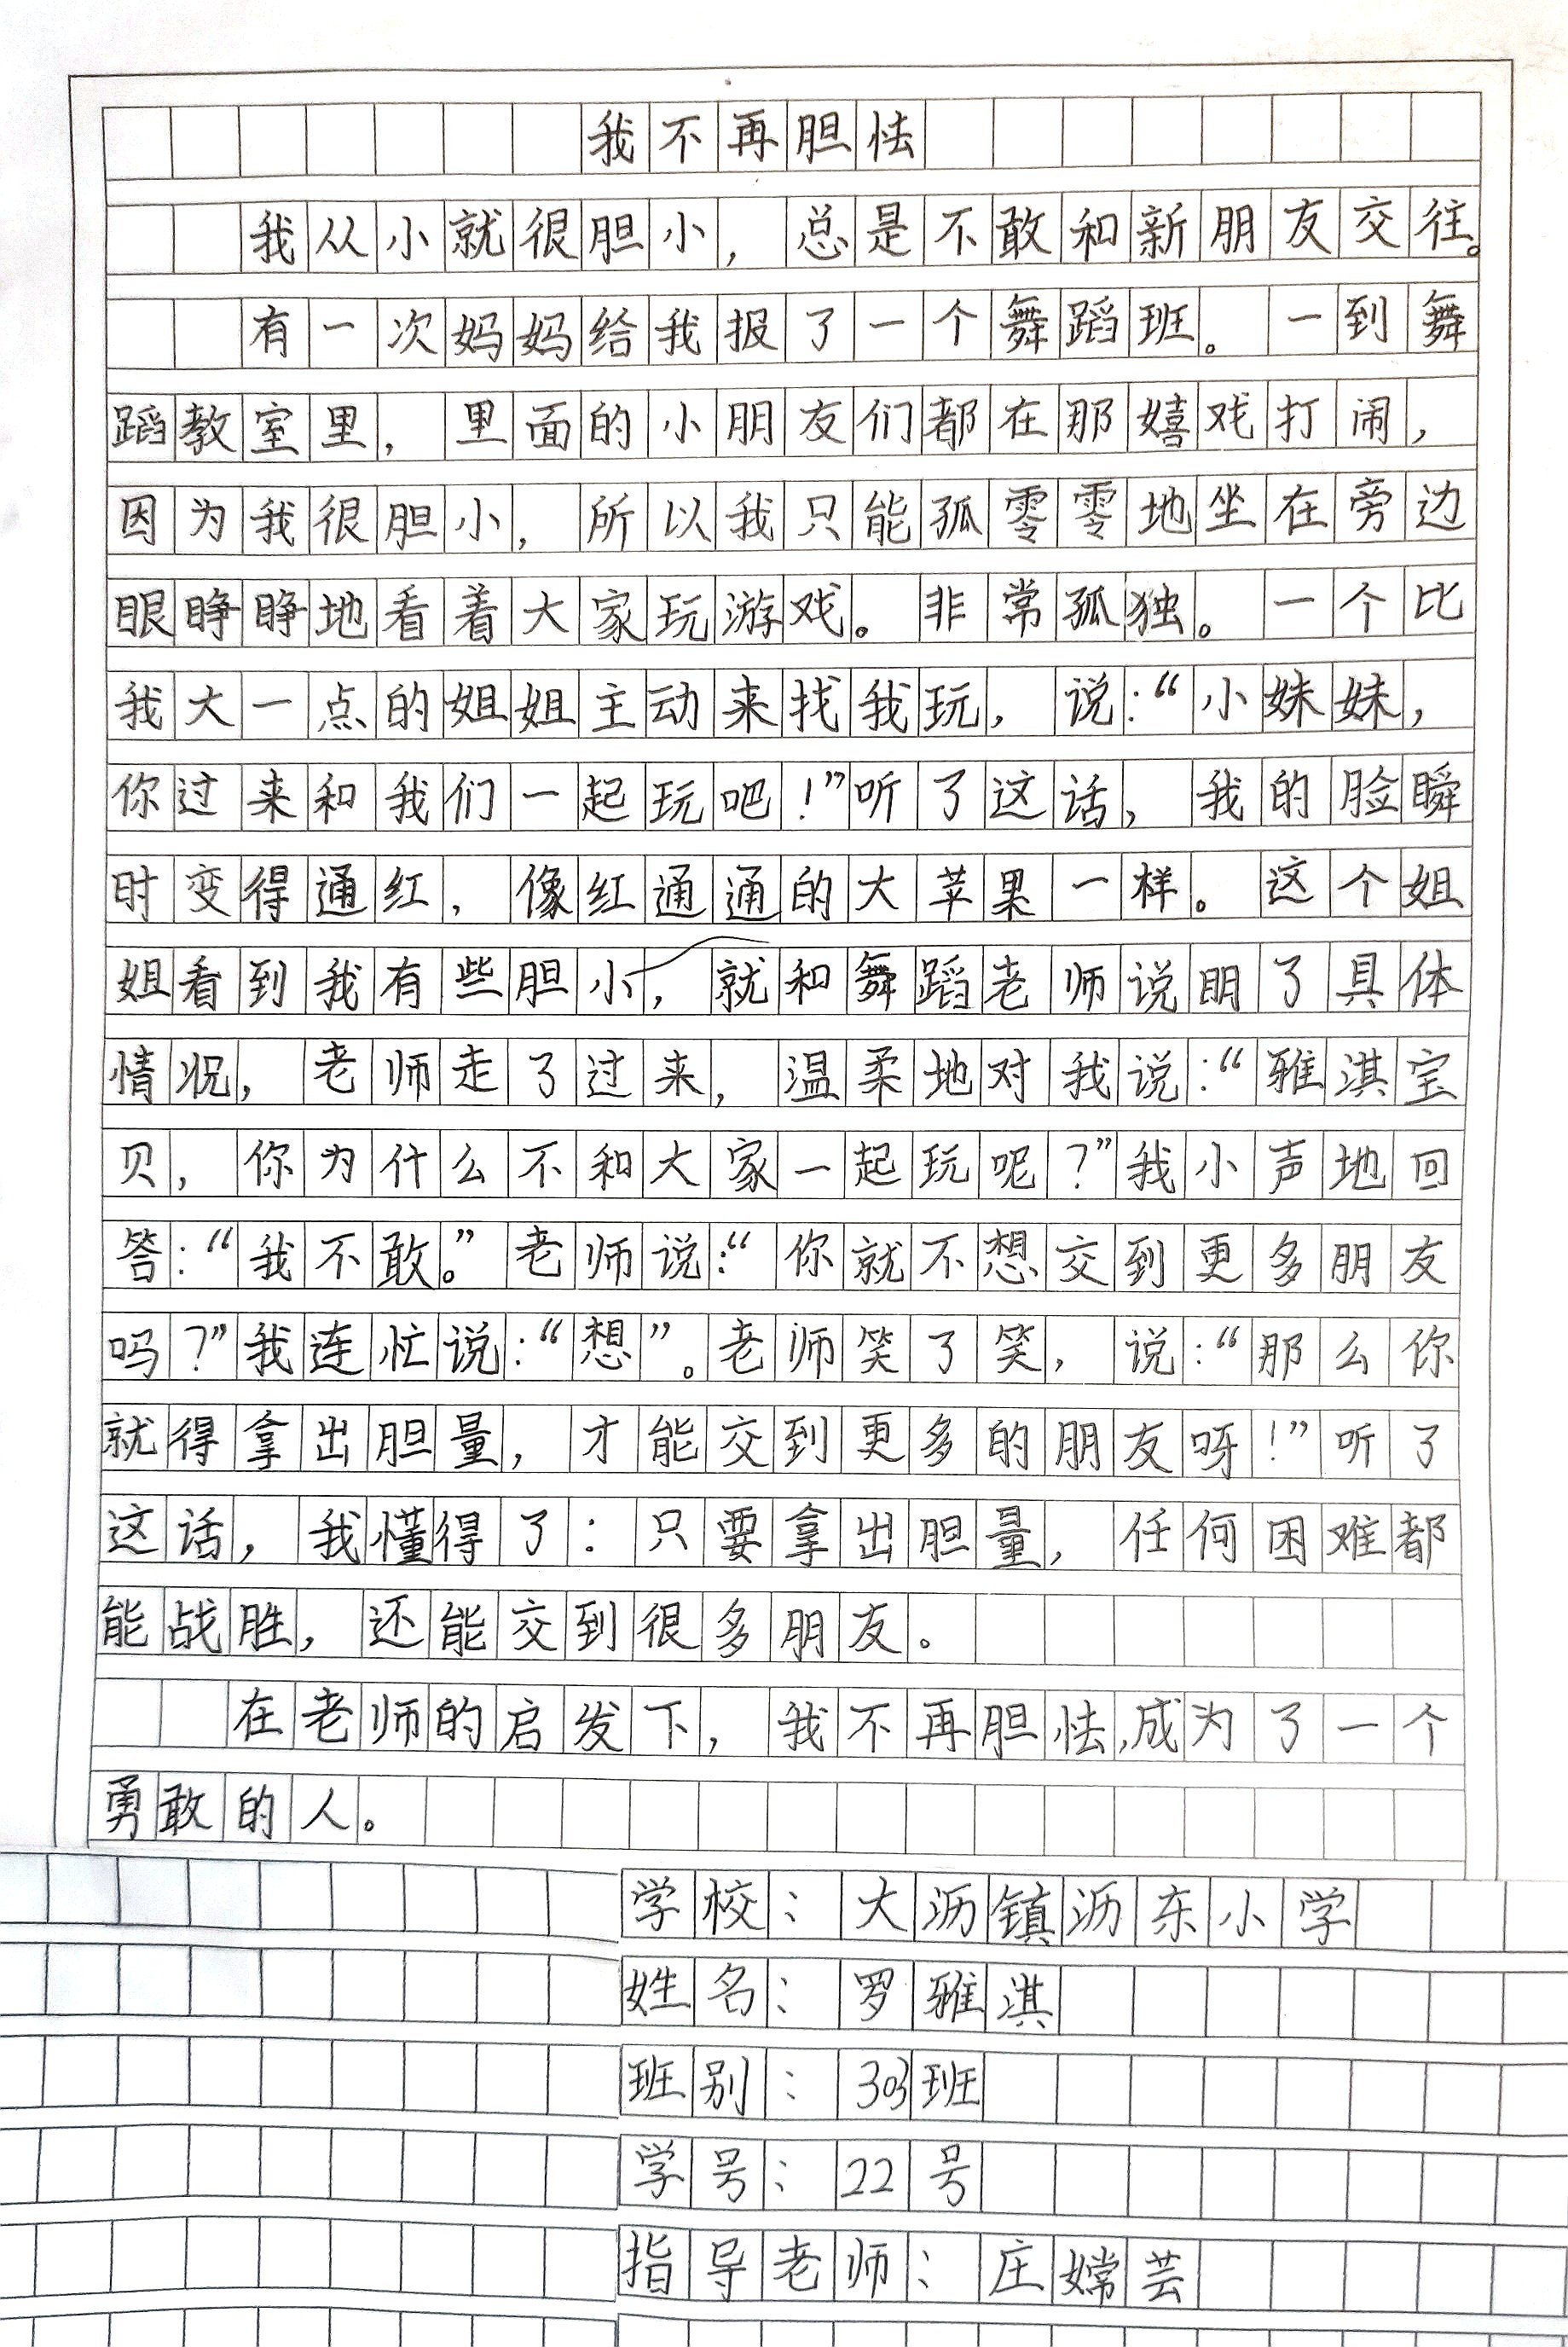 我不再胆怯
我从小就很胆小，总是不敢和新朋友交往。
有一次妈妈给我报了一个舞蹈班。一到舞
蹈教室里，里面的小朋友们都在那嬉戏打闹，
因为我很胆小，所以我只能孤零零地坐在旁边
眼睁睁地看着大家玩游戏。非常孤独。一个比
我大一点的姐姐主动来找我玩，说：“小妹妹，
你过来和我们一起玩吧！”听了这话，我的脸瞬
时变得通红，像红通通的大苹果一样。这个姐
姐看到我有些胆小，就和舞蹈老师说明了具体
情况，老师走了过来，温柔地对我说：“雅淇宝
贝，你为什么不和大家一起玩呢？”我小声地回
答：“我不敢。”老师说：“你就不想交到更多朋友
吗？”我连忙说：“想”。老师笑了笑，说：“那么你
就得拿出胆量，才能交到更多的朋友呀！”听了
这话，我懂得了：只要拿出胆量，任何困难都
能战胜，还能交到很多朋友。
在老师的启发下，我不再胆怯，成为了一个
勇敢的人。
学校：大沥镇沥东小学
姓名：罗雅淇
班别：303班
学号：22号
指导老师：庄嫦芸